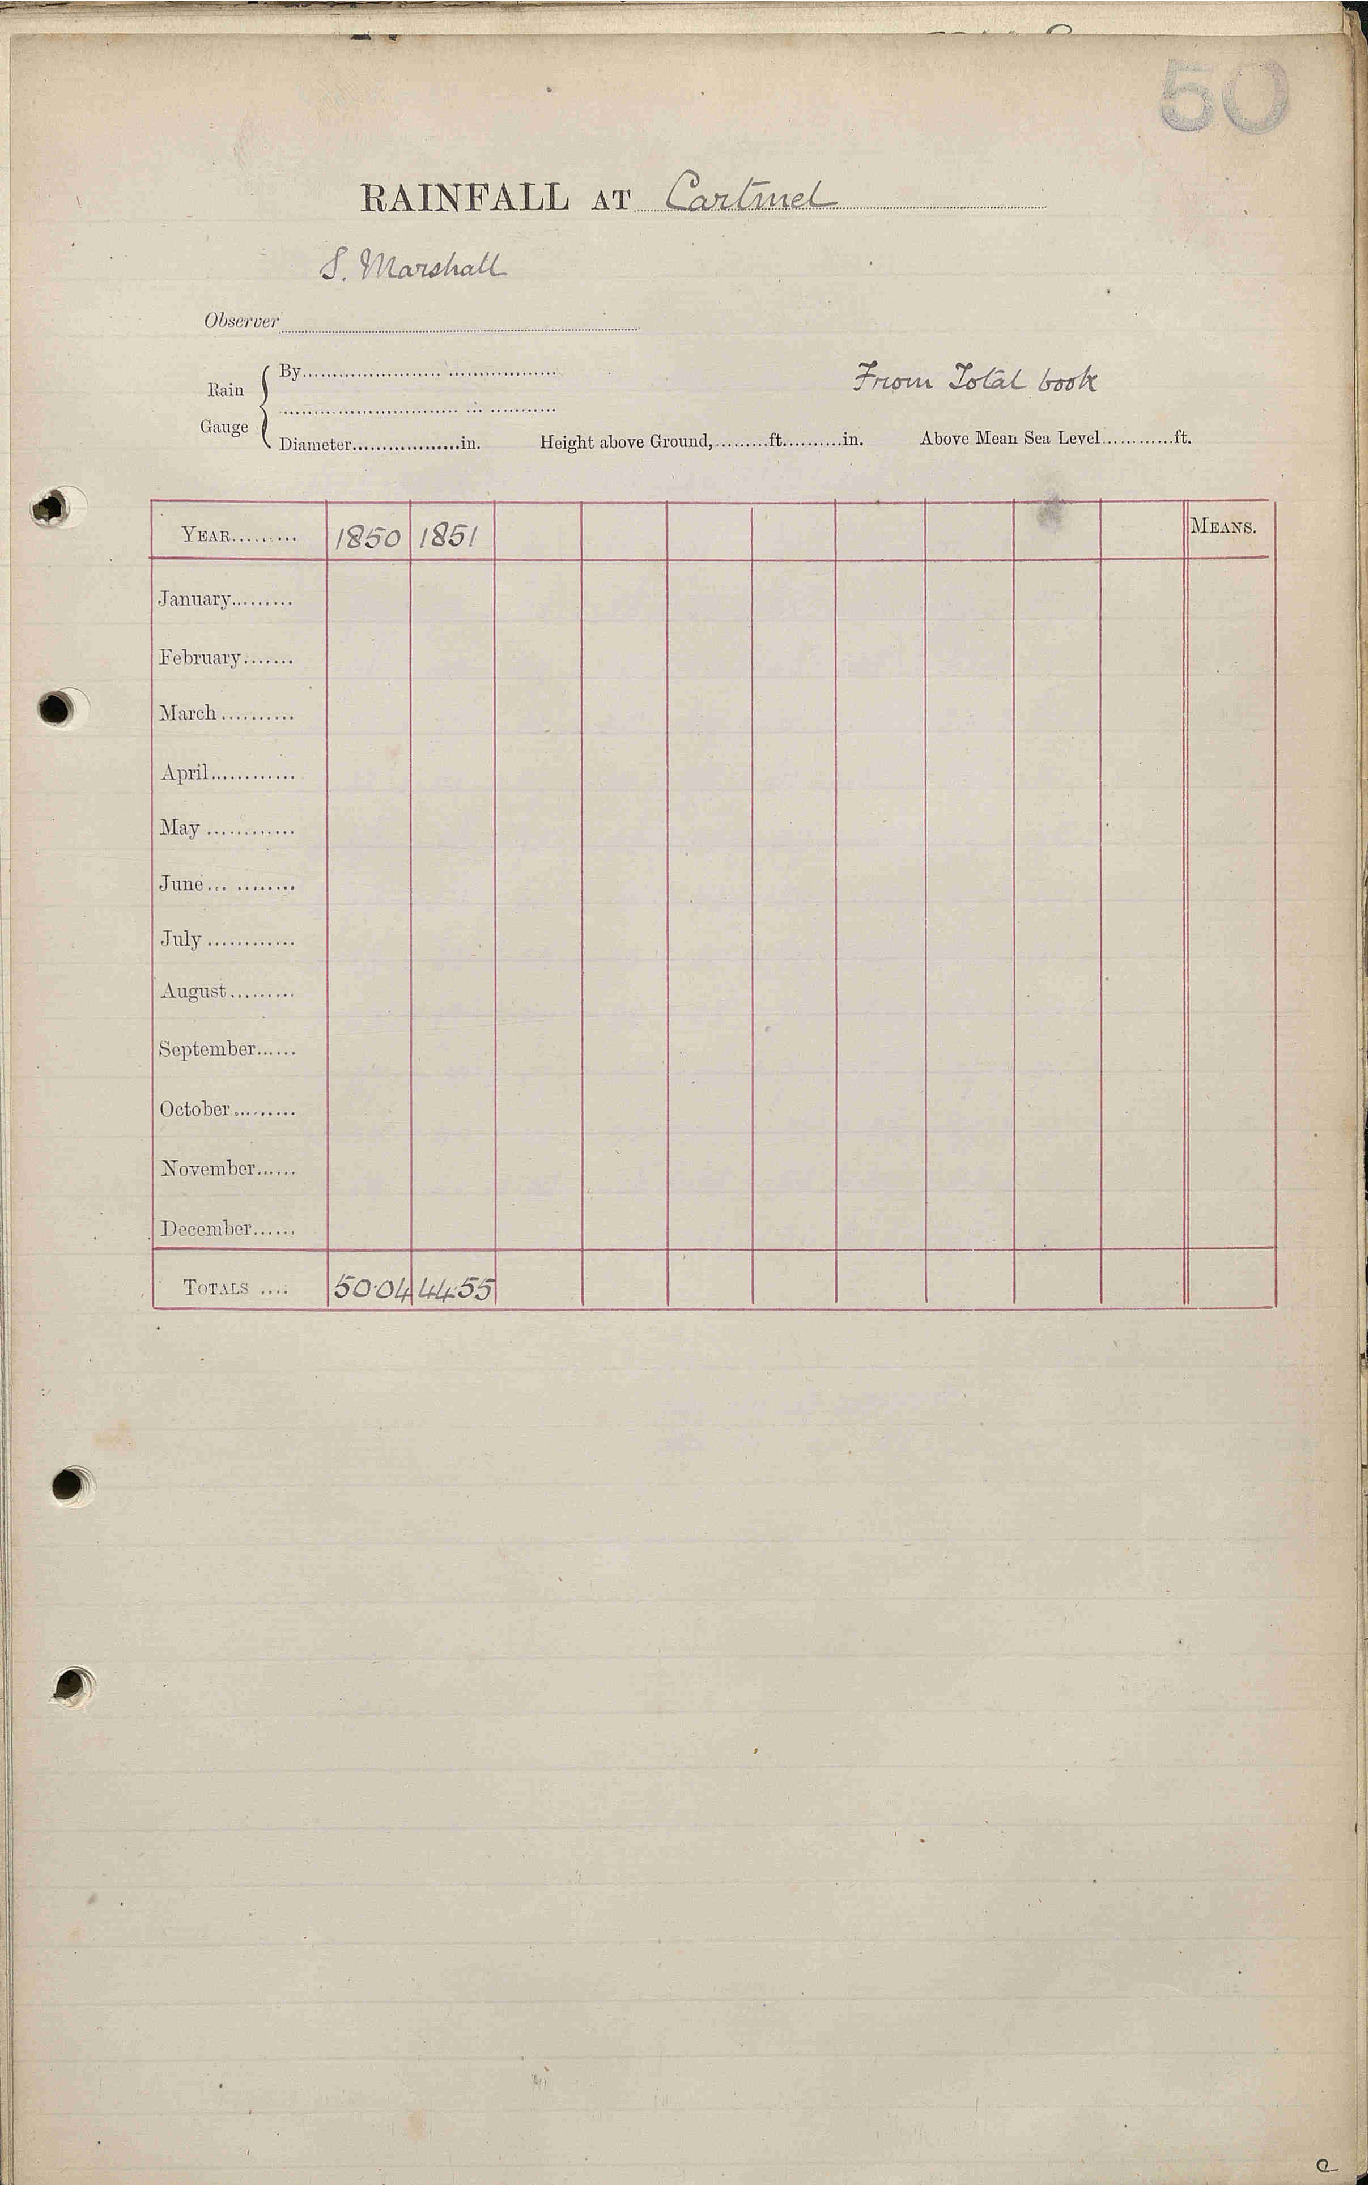 50
RAINFALL AT Cartmel
S. Marshall
Observer
Rain Gauge { By
From Total book
Diameter..................in. Height above Ground,.........ft..........in. Above Mean Sea Level............ft.
YEAR......... 1850 1851 MEANS.
January.........
February.......
March..........
April............
May............
June... ........
July............
August.........
September......
October.........
November......
December......
TOTALS .... 50.04 44.55
e